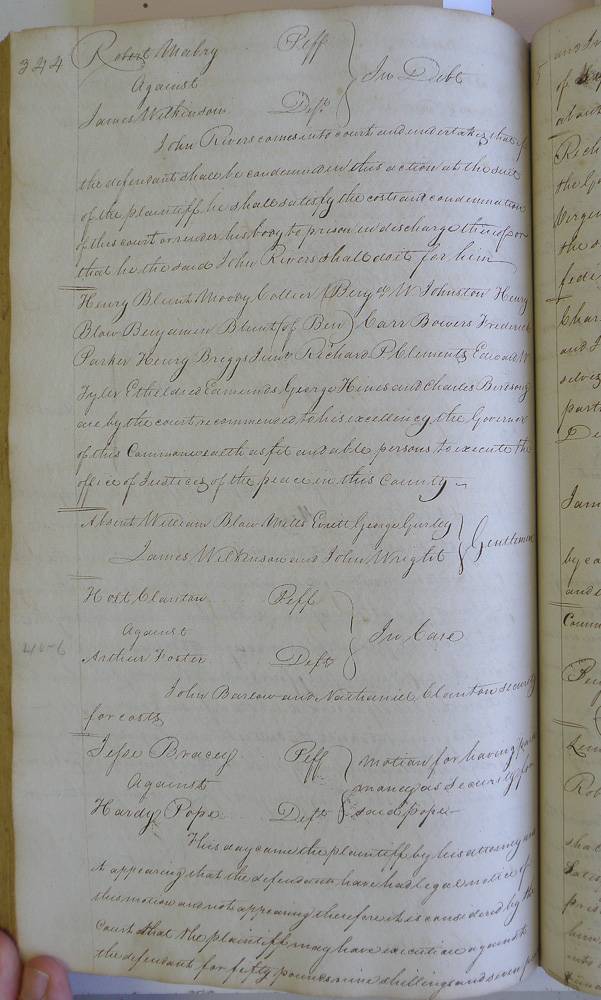 344
Robert Mabry Peff
Against In Debt
James Wilkinson Deft
John Rivers comes into court and undertakes that if
the defendant shall be condemned in this action at the suit
of the plaintiff he shall satisfy the costs and condemnation
of this court or render his body to prison in discharge thereof or
that he the said John Rivers shall do it for him
Henry Blunt Moody Collier (Benja W Johnston Henry
Blow Benjamen Blunt (of Ben) Carr Bowers Frederick
Parker Henry Briggs Junr Richard P Clements Edward W
Tyler Etheldred Edmunds George Hines and Charles Birdsong
are by the court recommended to his excellency the Governor
of this Commonwealth as fit and able persons to execute the
office of Justices of the peace in this County
Absent William Blow Mills Everett George Gurley
James Wilkinson and John Wright Gentlemen
Holt Clanton Peff
Against In Case
Arthur Foster Deft
John Barlow and Nathaniel Clanton security
for costs
Jesse Bracey Peff motion for having paid
Against money as security for
Hardy Pope Deft said pope
This day came the plaintiff by his attorney and
it appearing that the defendant have had legal notice of
this motion and not appearing therefore it is considered by the
Court that the plaintiff may have execution against
the defendant for fifty pounds nine shillings and seven
and
of
about
Rich
the
Virgin
the
Char
and
selves
part
De
Jam
by ca
and
Coun
Rob
shal
pris
him